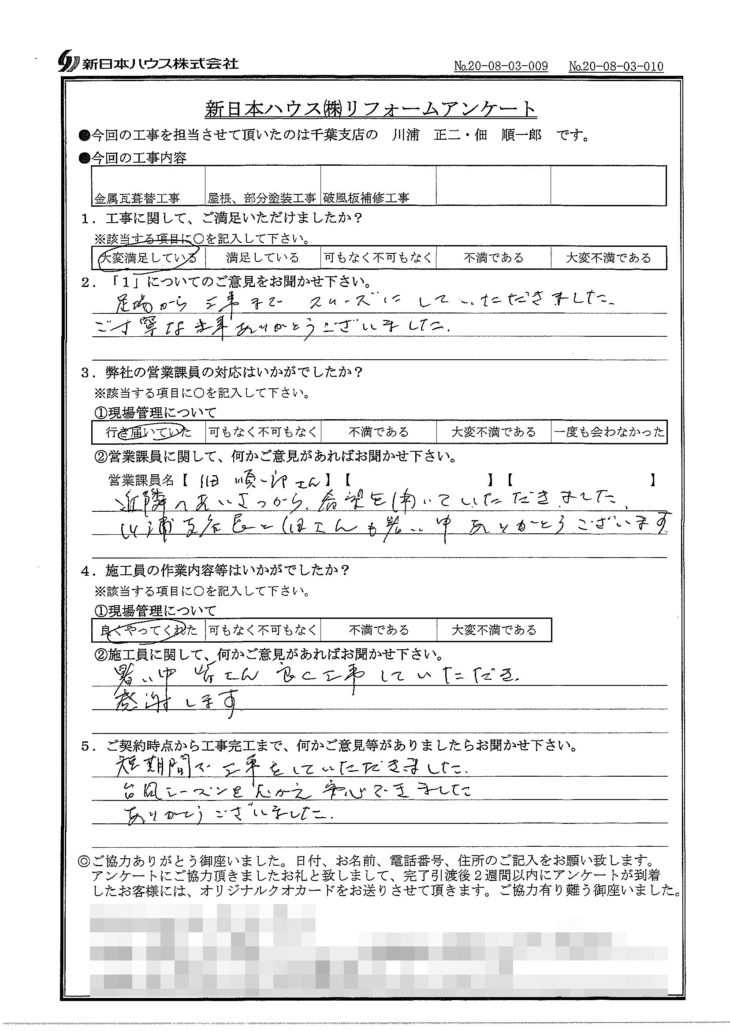 新日本ハウス株式会社
№20-08-03-009 №20-08-03-010
新日本ハウス㈱リフォームアンケート
●今回の工事を担当させて頂いたのは千葉支店の 川浦 正二・佃 順一郎 です。
●今回の工事内容
金属瓦葺替工事 屋根、部分塗装工事 破風板補修工事
1．工事に関して、ご満足いただけましたか？
※該当する項目に○を記入して下さい。
大変満足している 満足している 可もなく不可もなく 不満である 大変不満である
2．「1」についてのご意見をお聞かせ下さい。
足場から工事まで スムーズにしていただきました。
ご丁寧な仕事ありがとうございました。
3．弊社の営業課員の対応はいかがでしたか？
※該当する項目に○を記入して下さい。
①現場管理について
行き届いていた 可もなく不可もなく 不満である 大変不満である 一度も会わなかった
②営業課員に関して、何かご意見があればお聞かせ下さい。
営業課員名【 佃 順一郎さん 】【 】【 】
近隣へあいさつから、希望を聞いていただきました。
川浦支店長と佃さんも暑い中ありがとうございます
4．施工員の作業内容等はいかがでしたか？
※該当する項目に○を記入して下さい。
①現場管理について
良くやってくれた 可もなく不可もなく 不満である 大変不満である
②施工員に関して、何かご意見があればお聞かせ下さい。
暑い中 皆さん 良く工事していただき、
感謝します
5．ご契約時点から工事完工まで、何かご意見等がありましたらお聞かせ下さい。
短期間で工事をしていただきました。
台風シーズンをむかえ 安心できました
ありがとうございました。
◎ご協力ありがとう御座いました。日付、お名前、電話番号、住所のご記入をお願い致します。
アンケートにご協力頂きましたお礼と致しまして、完了引渡後２週間以内にアンケートが到着
したお客様には、オリジナルクオカードをお送りさせて頂きます。ご協力有り難う御座いました。